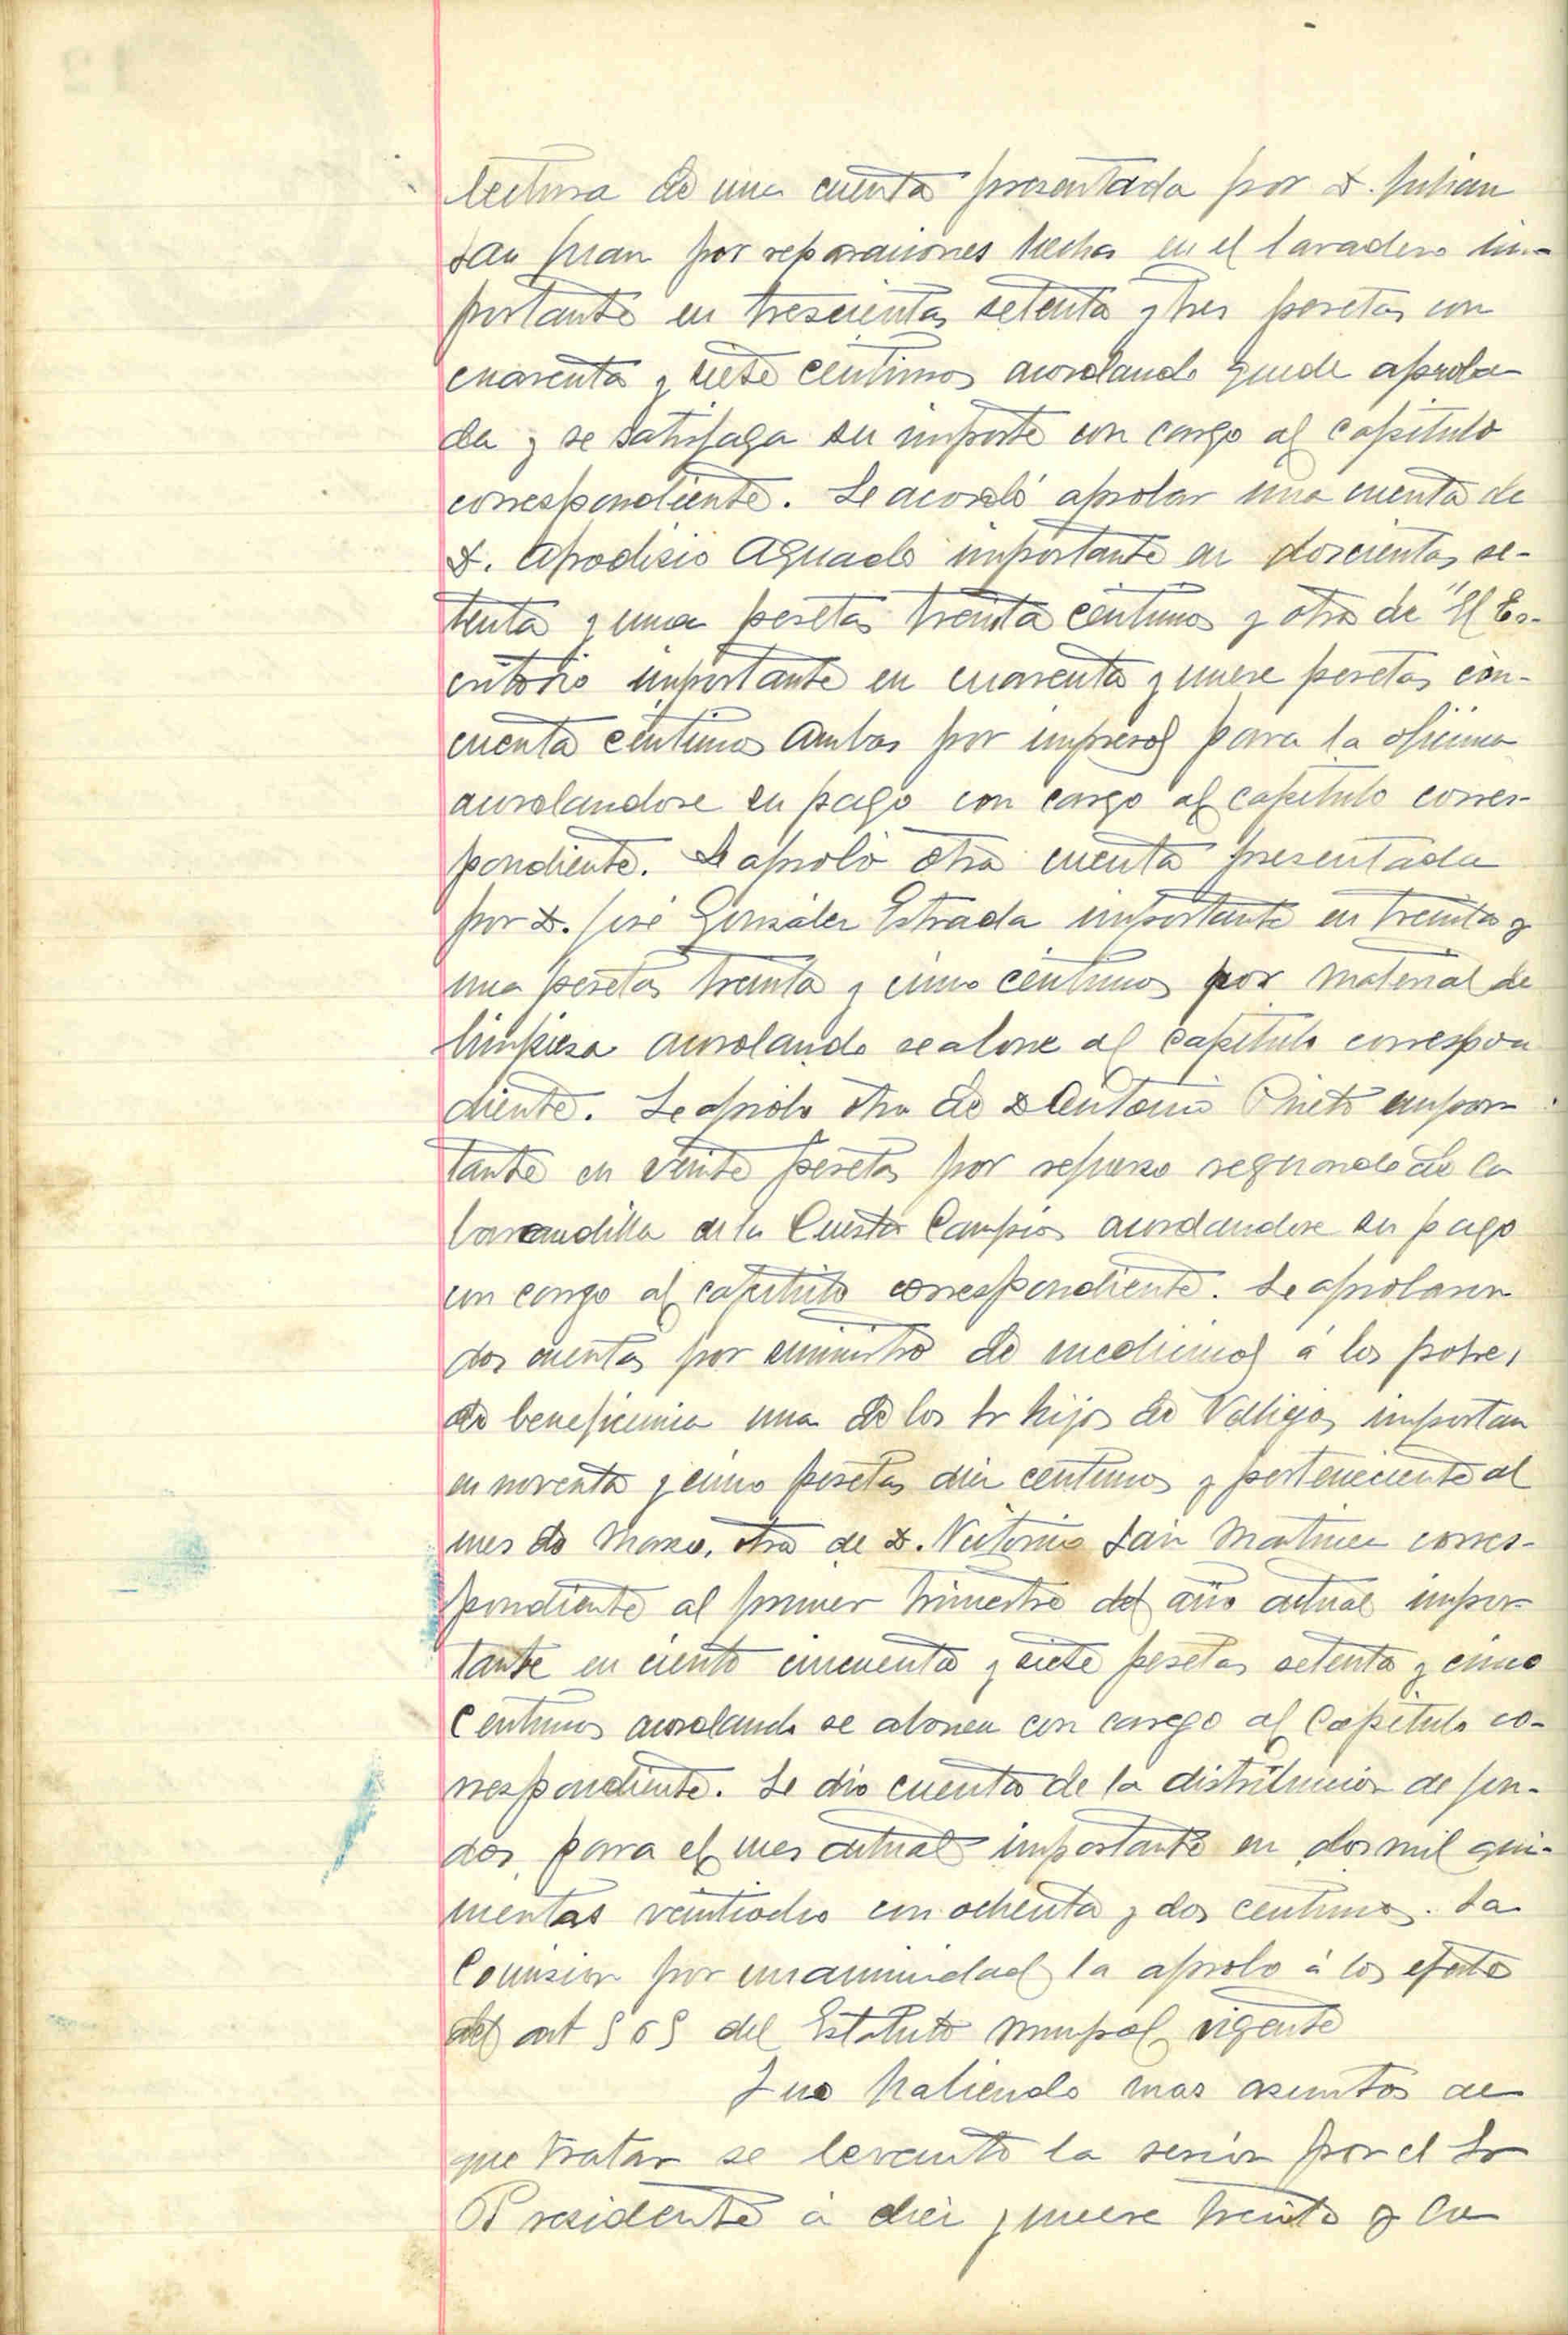 lectura de una cuenta presentada por D. Julian
San Juan por reparaciones hechas en el lavadero im-
portante en trescientas setenta y tres pesetas con
cuarenta y siete centimos acordando quede aproba-
da y se satisfaga su importe con cargo al capitulo
correspondiente. Se acordó aprobar una cuenta de
D. Afrodisio Aguado importante en doscientas se-
tenta y una pesetas treinta centimos y otra de "El Es-
critorio importante en cuarenta y nueve pesetas cin-
cuenta centimos ambas por impresos para la oficina
acordandose su pago con cargo al capitulo corres-
pondiente. Se aprobó otra cuenta presentada
por D. José González Estrada importante en treinta y
una pesetas treinta y cinco centimos por material de
limpieza acordando se abone al capitulo correspon
diente. Se aprobo otra de D Antonio Prieto impor-
tante en veinte pesetas por refuerzo de la
barandilla de la Cuesta acordandose su pago
con cargo al capitulo correspondiente. Se aprobaron
dos cuentas por suministro de medicinas á los pobres
de beneficencia una de los Sr hijos de Vallejo, importan
en noventa y cinco pesetas diez centimos y perteneciente al
mes de Marzo, otra de D. Victorino San Martin corres-
pondiente al primer trimestre del año actual impor-
tante en ciento cincuenta y siete pesetas setenta y cinco
centimos acordando se abonen con cargo al Capitulo co-
rrespondiente. Se dio cuenta de la distribucion de fon-
dos para el mes actual importante en dos mil qui-
nientas veintiocho con ochenta y dos centimos. La
Comision por unanimidad la aprobo á los efectos
del art 505 del Estatuto Munpal vigente
Y no habiendo mas asuntos de
que tratar se levanto la sesión por el Sr
Presidente á diez y nueve treinta y cu